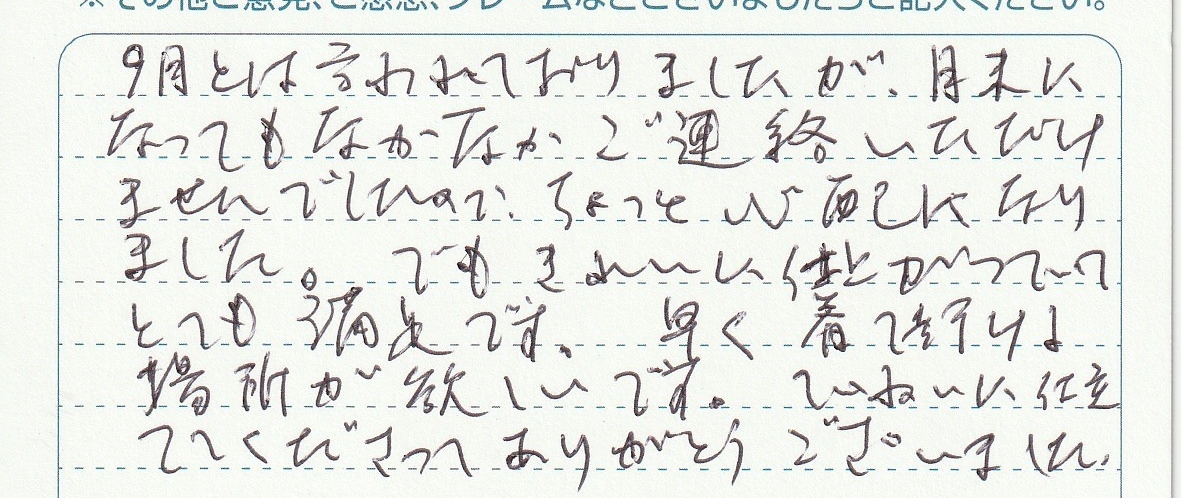 ※その他ご意見、ご感想、クレームなどございましたらご記入ください。
9月とは言われておりましたが、月末に
なってもなかなかご連絡いただけ
ませんでしたので、ちょっと心配になり
ました。でもきれいに仕上がっていて
とても満足です。早く着て行ける
場所が欲しいです。ていねいに仕立
ててくださってありがとうございました。